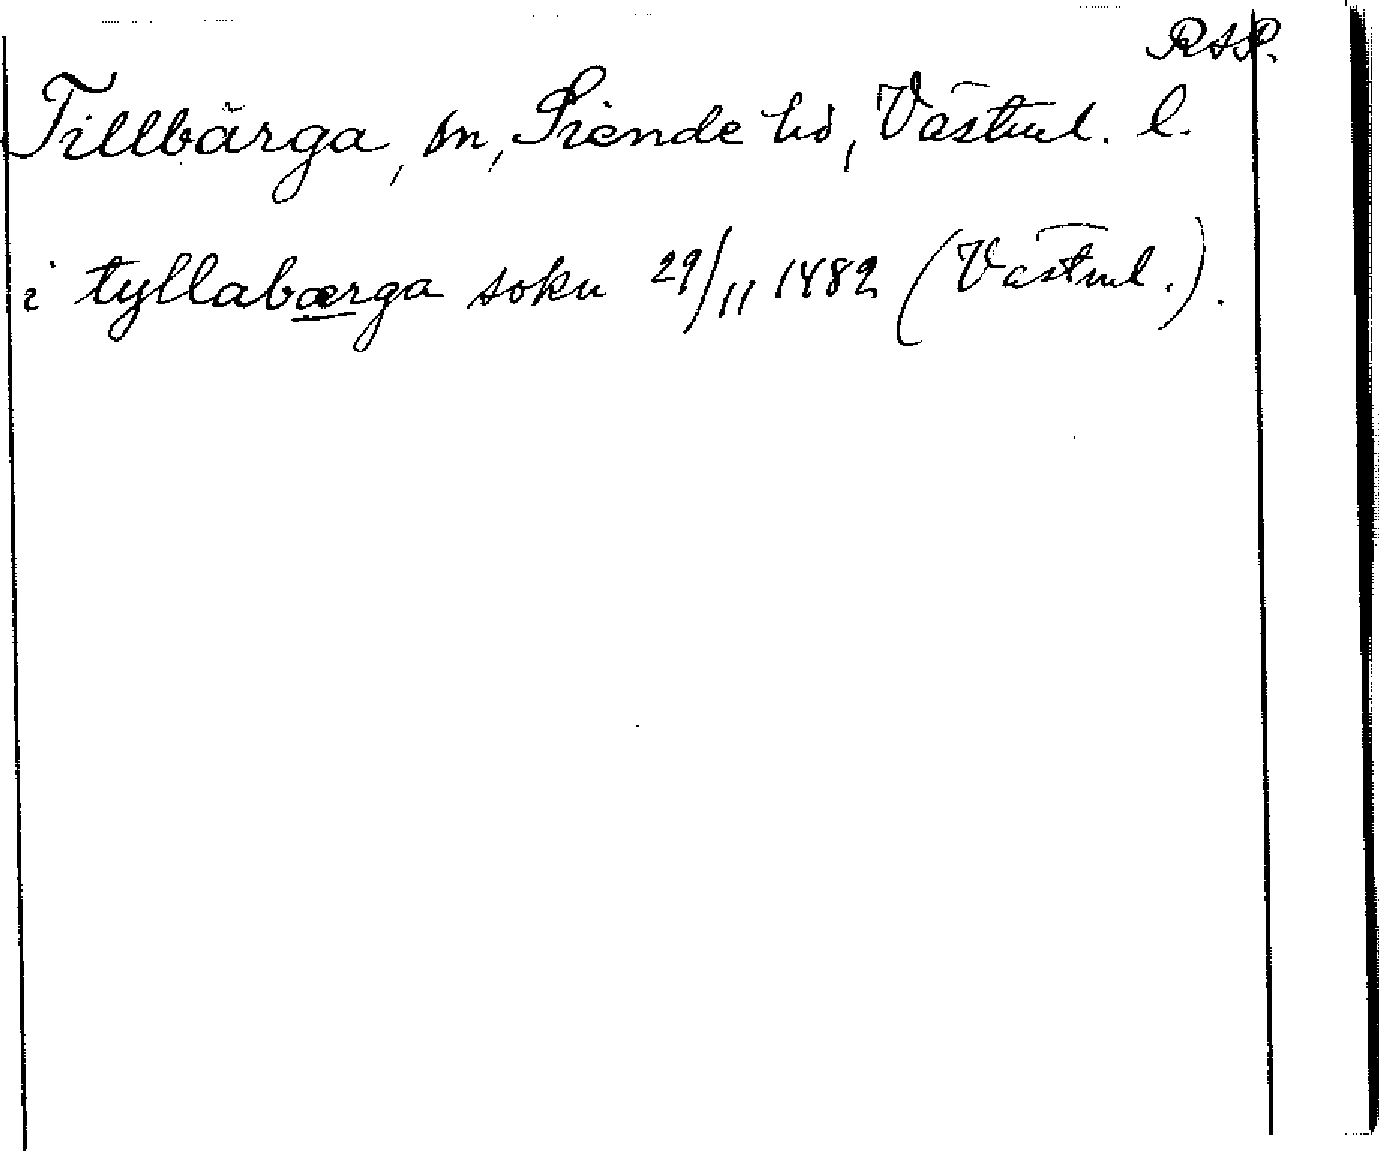 RAP.
Tillbärga, sn, Siende hd, Västml. l.
i tyllabærga sokn 29/11 1482 (Västml.).